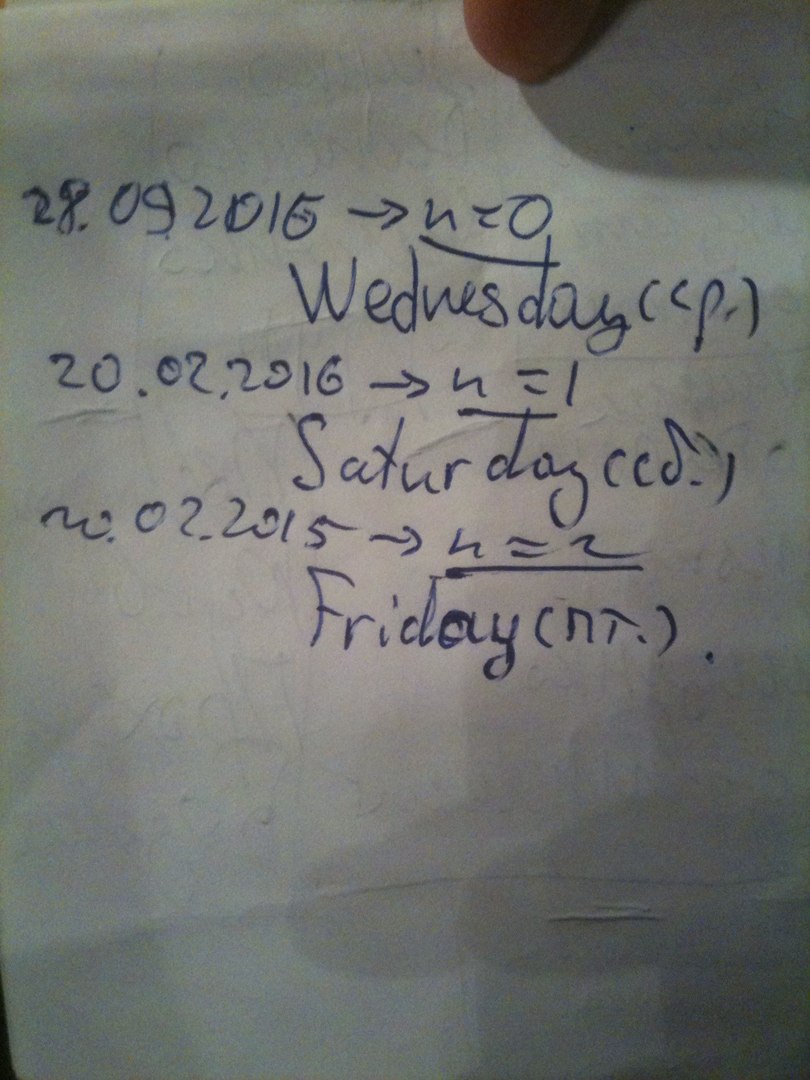 28.09.2016 → n=0
Wednesday (ср.)
20.02.2016 → n=1
Saturday (сб.)
20.02.2015 → n=2
Friday (пт.).